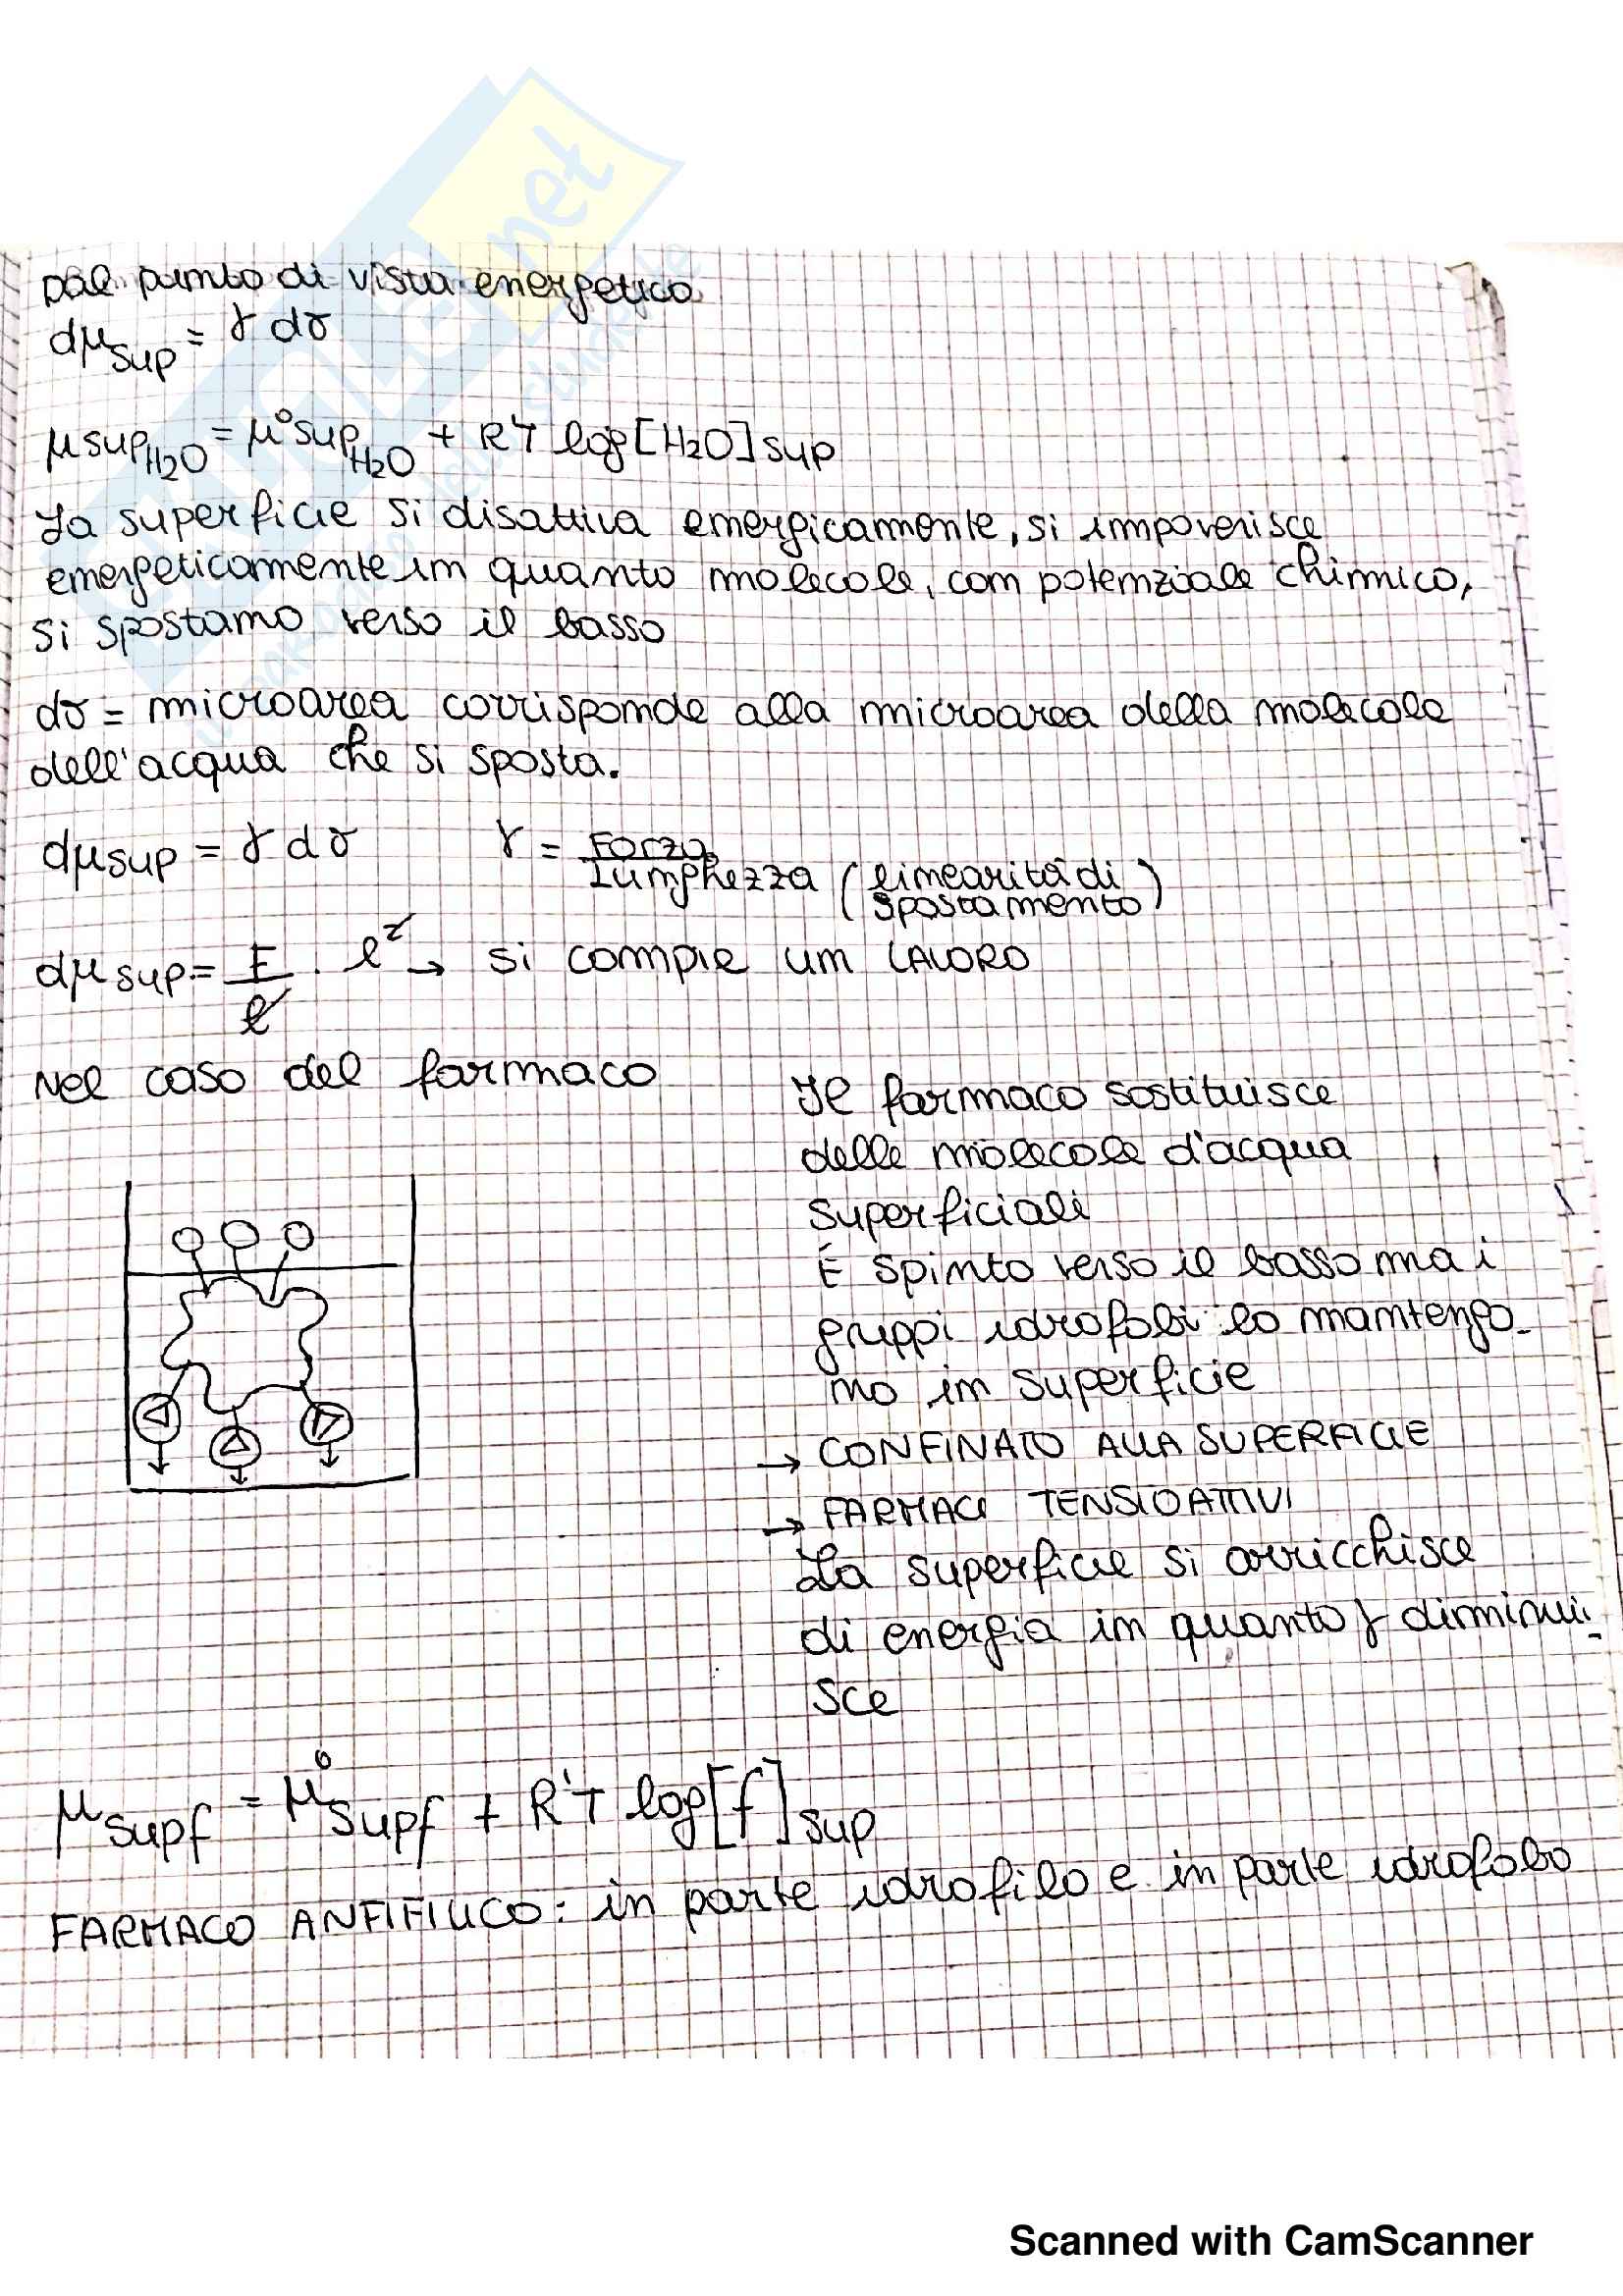 Dal punto di vista energetico
dμsup = γ dσ
μsupH2O = μ°supH2O + R'T log[H2O]sup
La superficie si disattiva energicamente, si impoverisce
energeticamente in quanto molecole, con potenziale chimico,
si spostano verso il basso
dσ = microarea corrisponde alla microarea della molecola
dell'acqua che si sposta.
dμsup = γ dσ γ = Forza / Lunghezza (linearità di spostamento)
dμsup = F/l · l² → si compie un LAVORO
Nel caso del farmaco
Il farmaco sostituisce
delle molecole d'acqua
superficiali
É spinto verso il basso ma i
gruppi idrofobi lo mantengo-
no in superficie
→ CONFINATO ALLA SUPERFICIE
→ FARMACI TENSIOATTIVI
La superficie si arricchisce
di energia in quanto γ diminui-
sce
μsupf = μ°supf + R'T log[f]sup
FARMACO ANFIFILICO: in parte idrofilo e in parte idrofobo
Scanned with CamScanner